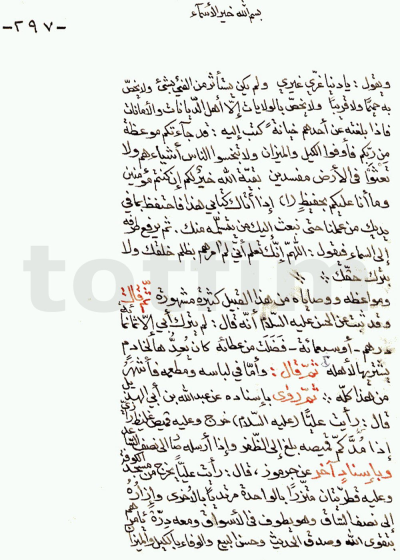 بسم الله خير الأسماء
-٢٩٧-
ويقول: يا دنيا غري غيري ولم يكن يستأثر من الفيء بشيء ولا يخص
به حميما ولا قريبا ولا يخص بالولايات إلا أهل الديانات والأمانات
فإذا بلغته عن أحدهم خيانة كتب إليه: قد جاءتكم موعظة
من ربكم فأوفوا الكيل والميزان ولا تبخسوا الناس أشياءهم ولا
تعثوا في الأرض مفسدين بقية الله خير لكم إن كنتم مؤمنين
وما أنا عليكم بحفيظ إذا أتاك كتابي هذا فاحتفظ بما في
يديك من عملنا حتى نبعث إليك من يتسلمه منك. ثم يرفع طرفه
إلى السماء فيقول: اللهم إنك تعلم أني لم آمرهم بظلم خلقك ولا
بترك حقك
ومواعظه ووصاياه من هذا القبيل كثيرة مشهورة ثم قال:
وقد ثبت عن الحسن عليه السلام أنه قال: لم يترك أبي إلا ثمانمائة
درهم - أو سبعمائة - فضلت من عطائه كان يعدها لخادم
يشتريها لأهله ثم قال: وأما في لباسه ومطعمه فأشهر
من هذا كله ثم روى بإسناده عن عبد الله بن أبي الهذيل
قال: رأيت عليا (عليه السلام) خرج وعليه قميص غليظ رازي
إذا مد كم قميصه بلغ إلى الظفر وإذا أرسله صار إلى نصف الساعد
وبإسناد آخر عن جرموز، قال: رأيت عليا يخرج من مسجد الكوفة
وعليه قطريتان متزرا بالواحدة مرتديا بالأخرى وإزاره
إلى نصف الساق وهو يطوف في الأسواق ومعه درة يأمرهم
بتقوى الله وصدق الحديث وحسن البيع والوفاء بالكيل والميزان
tottini